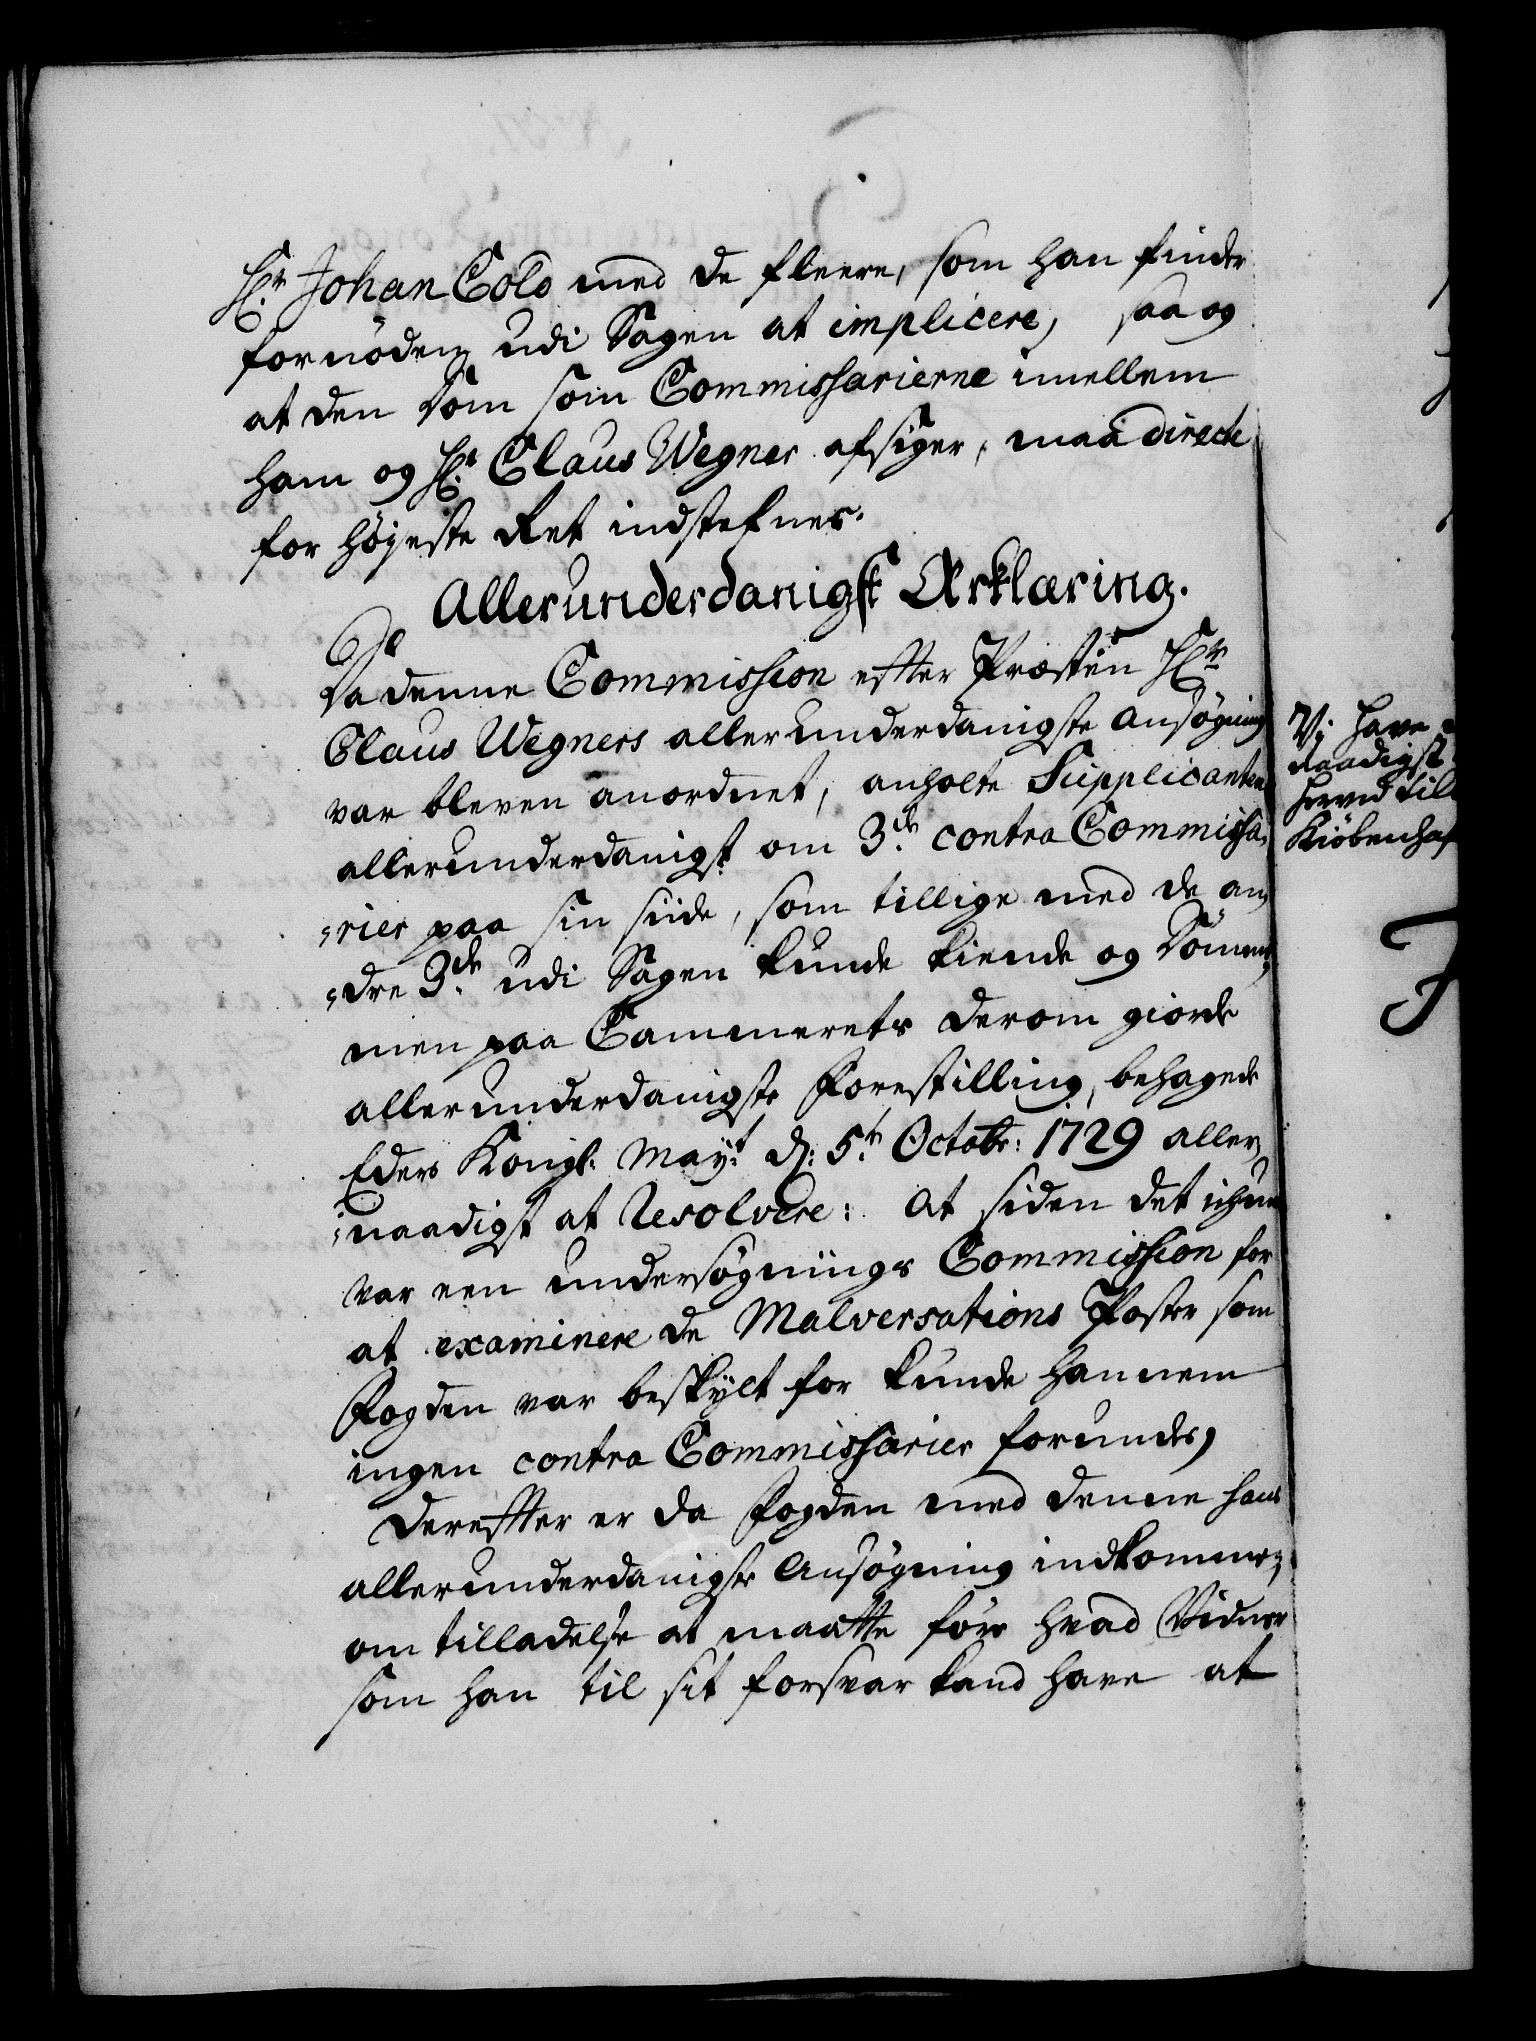 Hr. Johan Cold med de fleere, som han finder
fornöden udi Sagen at implicere, saa og
at den Dom som Commissarierne imellem
ham og Hr. Claus Wegner afsiger, maa directe
for höyeste Ret indstefnes.
Allerunderdanigst Erklæring.
Da denne Commission effter Præsten Hr.
Claus Wegners allerunderdanigste Ansögning
var bleven anordnet, anholte Supplicanten
allerunderdanigst om 3de contra Commissa-
rier paa sin siide, som tillige med de an-
dre 3de udi Sagen kunde kiende og Dömme,
men paa Cammerets derom giorde
allerunderdanigste Forestilling, behagede
Eders Kongl: May:t d: 5te Octobr: 1729 aller-
naadigst at Resolvere: At siden det ickun
var een undersögnings Commission for
at examinere de Malversations Poster som
Fogden var beskylt for kunde hannem
ingen contra Commissarier forundes,
Dereffter er da Fogden med denne hans
allerunderdanigste Ansögning indkommen,
om tilladelse at maatte före hvad Vidner
som han til sit forsvar kand have at
Vi have
naadigst
herved till
Kiöbenhaf
F